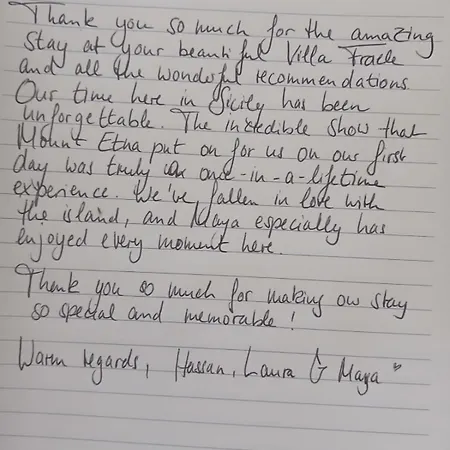 Thank you so much for the amazing
stay at your beautiful Villa Fraele
and all the wonderful recommendations.
Our time here in Sicily has been
unforgettable. The incredible show that
Mount Etna put on for us on our first
day was truly a once-in-a-lifetime
experience. We've fallen in love with
the island, and Maya especially has
enjoyed every moment here.
Thank you so much for making our stay
so special and memorable!
Warm regards, Hassan, Laura & Maya